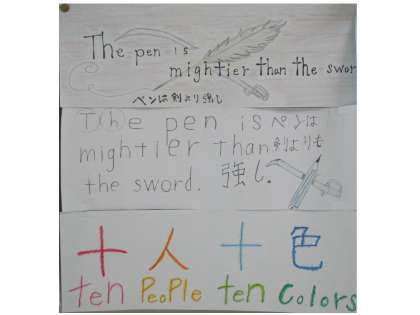 The pen is
mightier than the swor
ペンは剣より強し
The pen is ペンは
mightier than 剣よりも
the sword. 強し.
十人十色
ten PeoPle ten Colors